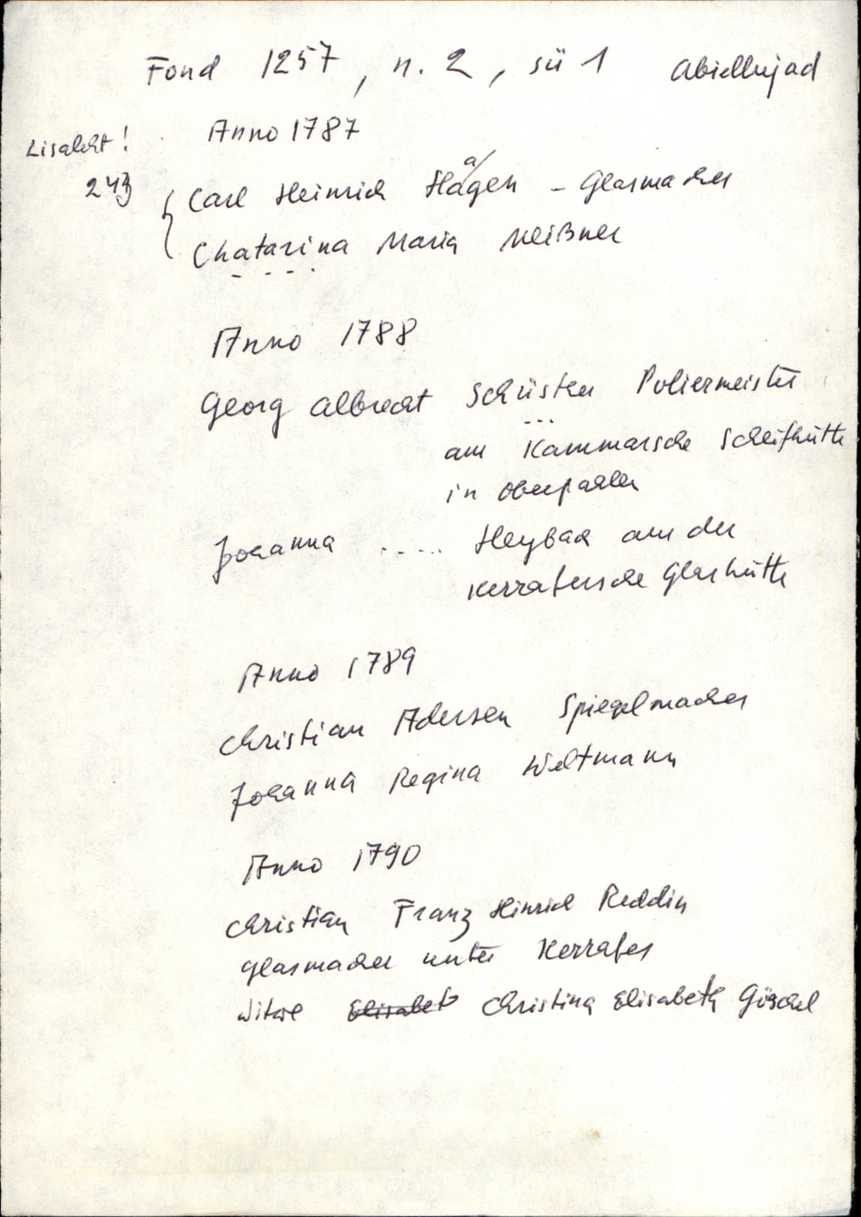 Fond 1257, n. 2, sü 1 Abiellujad
Lisaleht! Anno 1787
243 Carl Heinrich Hagen - Glasmacher
Chatarina Maria Meißner
Anno 1788
Georg Albrecht Schüsken Poliermeister
am Kammarsche Schleifhütte
in Oberpahlen
Johanna ..... Heybach aus der
Kerrafersche Glashütte
Anno 1789
Christian Adersen Spiegelmacher
Johanna Regina Weltmann
Anno 1790
Christian Franz Hinrich Reddin
Glasmacher unter Kerrafer
Witwe Elisabet Christina Elisabeth Göschel